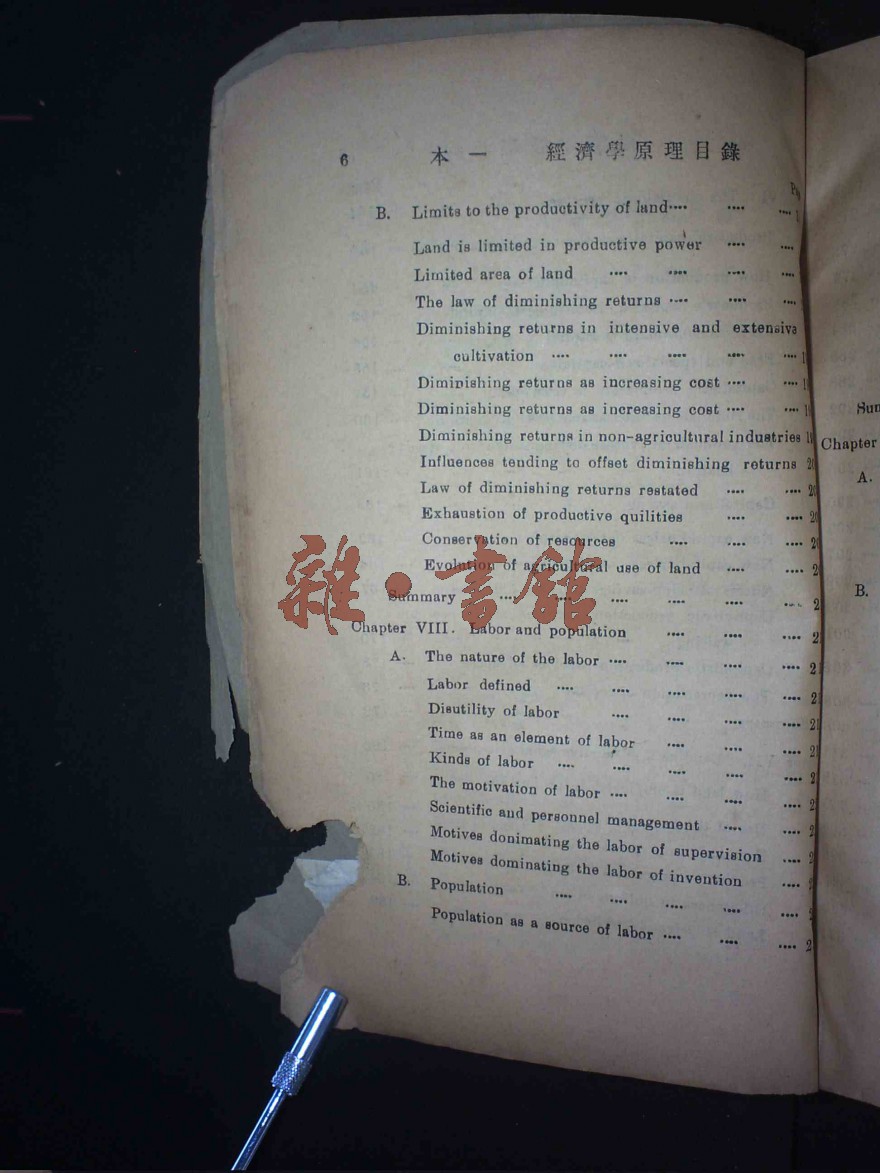 6 本一 經濟學原理目錄
B. Limits to the productivity of land.... .... ....
Land is limited in productive power .... ....
Limited area of land .... .... .... ....
The law of diminishing returns .... .... ....
Diminishing returns in intensive and extensive
cultivation .... .... .... .... ....
Diminishing returns as increasing cost .... ....
Diminishing returns as increasing cost .... ....
Diminishing returns in non-agricultural industries
Influences tending to offset diminishing returns
Law of diminishing returns restated .... ....
Exhaustion of productive quilities .... ....
Conservation of resources .... .... ....
Evolution of agricultural use of land .... ....
Summary .... .... .... .... ....
Chapter VIII. Labor and population .... .... ....
A. The nature of the labor .... .... .... ....
Labor defined .... .... .... .... ....
Disutility of labor .... .... .... ....
Time as an element of labor .... .... ....
Kinds of labor .... .... .... .... ....
The motivation of labor .... .... .... ....
Scientific and personnel management .... ....
Motives donimating the labor of supervision ....
Motives dominating the labor of invention ....
B. Population .... .... .... .... ....
Population as a source of labor .... .... ....
Chapter
A.
B.
雜·書館